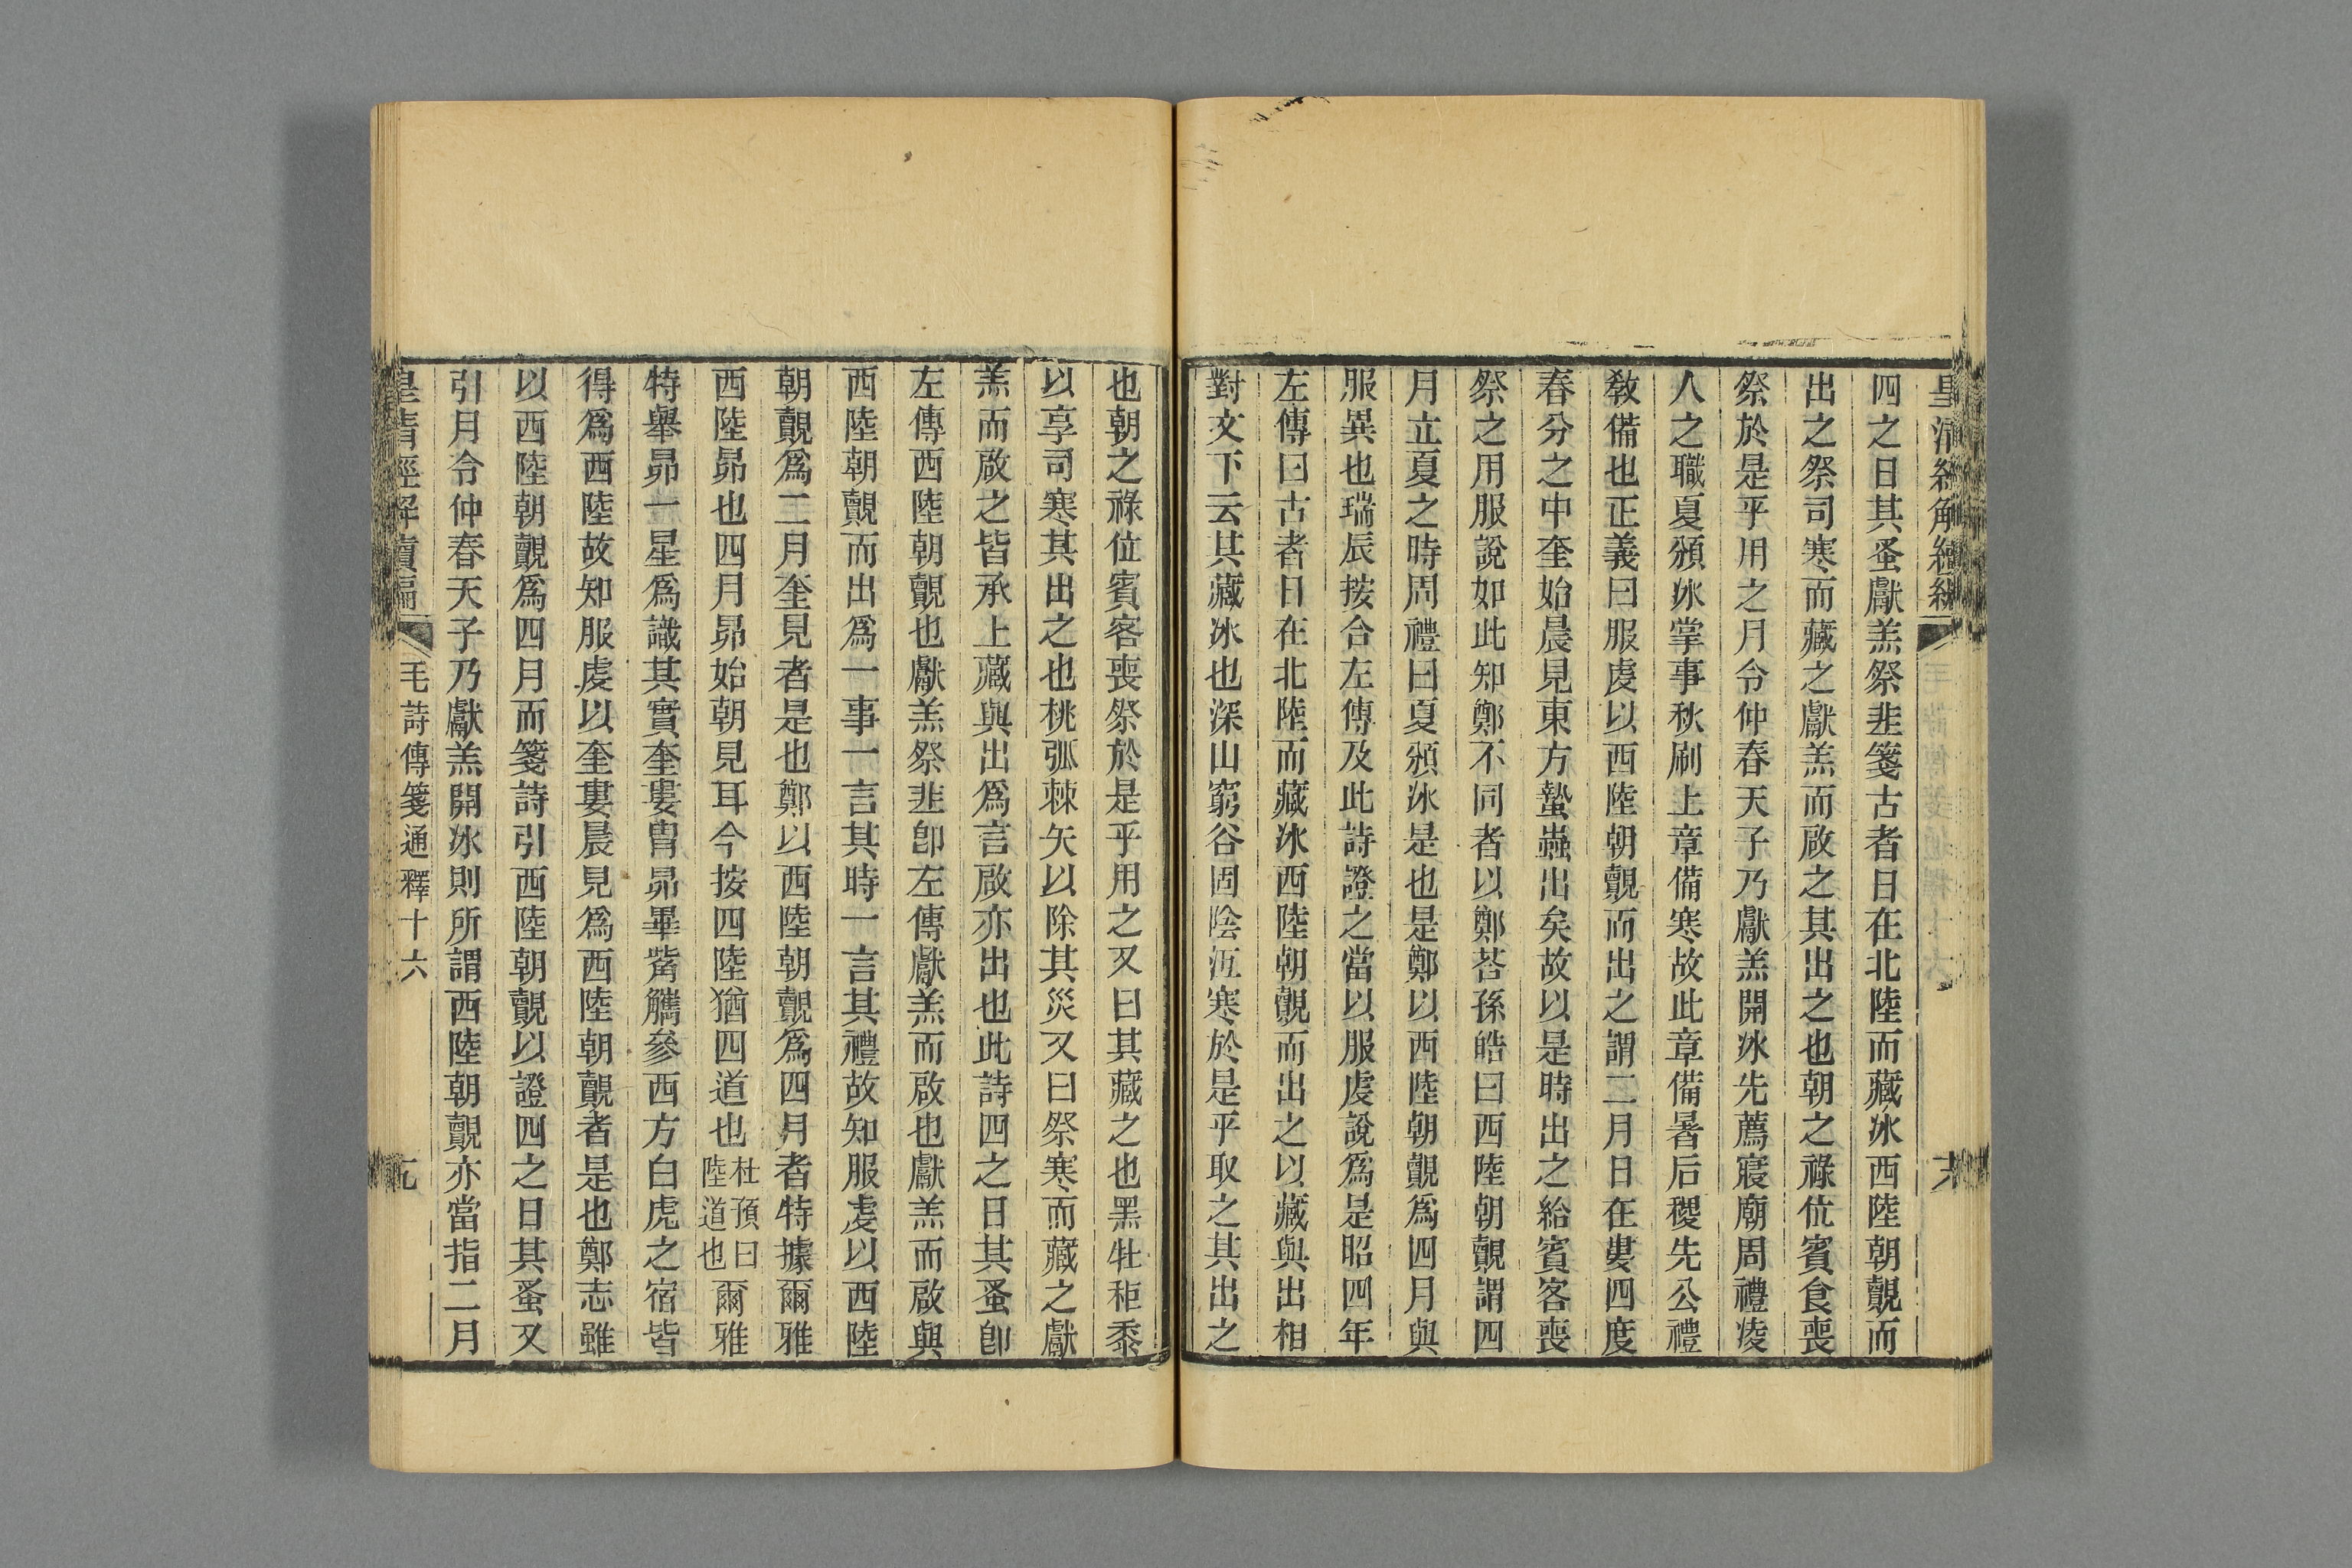 四之日其蚤獻羔祭韭箋古者日在北陸而藏冰西陸朝覿而
出之祭司寒而藏之獻羔而啟之其出之也朝之祿位賓食喪
祭於是乎用之月令仲春天子乃獻羔開冰先薦寢廟周禮凌
人之職夏頒冰掌事秋刷上章備寒故此章備暑后稷先公禮
敎備也正義曰服虔以西陸朝覿而出之謂二月日在婁四度
春分之中奎始晨見東方蟄蟲出矣故以是時出之給賓客喪
祭之用服說如此知鄭不同者以鄭荅孫皓曰西陸朝覿謂四
月立夏之時周禮曰夏頒冰是也是鄭以西陸朝覿爲四月與
服異也瑞辰按合左傳及此詩證之當以服虔說爲是昭四年
左傳曰古者日在北陸而藏冰西陸朝覿而出之以藏與出相
對文下云其藏冰也深山窮谷固陰沍寒於是乎取之其出之
也朝之祿位賓客喪祭於是乎用之又曰其藏之也黑牡秬黍
以享司寒其出之也桃弧棘矢以除其災又曰祭寒而藏之獻
羔而啟之皆承上藏與出爲言啟亦出也此詩四之日其蚤卽
左傳西陸朝覿也獻羔祭韭卽左傳獻羔而啟也獻羔而啟與
西陸朝覿而出爲一事一言其時一言其禮故知服虔以西陸
朝覿爲二月奎見者是也鄭以西陸朝覿爲四月者特據爾雅
西陸昴也四月昴始朝見耳今按四陸猶四道也杜預曰陸道也爾雅
特舉昴一星爲識其實奎婁胃昴畢觜觿參西方白虎之宿皆
得爲西陸故知服虔以奎婁晨見爲西陸朝覿者是也鄭志雖
以西陸朝覿爲四月而箋詩引西陸朝覿以證四之日其蚤又
引月令仲春天子乃獻羔開冰則所謂西陸朝覿亦當指二月
皇清經解續編 毛詩傳箋通釋十六